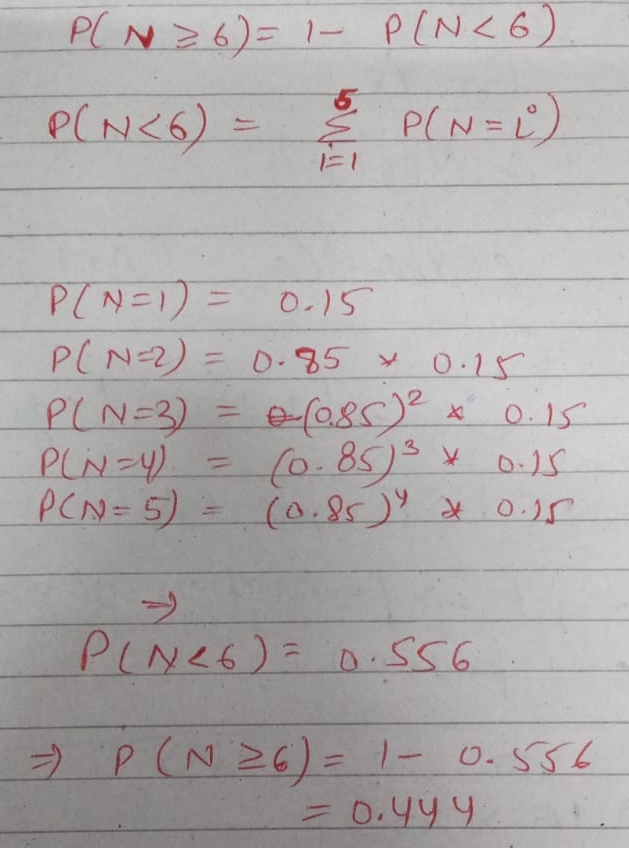 P(N ≥ 6) = 1 - P(N < 6)
P(N < 6) = 5 Σ i=1 P(N = i)
P(N=1) = 0.15
P(N=2) = 0.85 * 0.15
P(N=3) = (0.85)² * 0.15
P(N=4) = (0.85)³ * 0.15
P(N=5) = (0.85)⁴ * 0.15
⇒
P(N<6) = 0.556
⇒ P(N ≥ 6) = 1 - 0.556
= 0.444